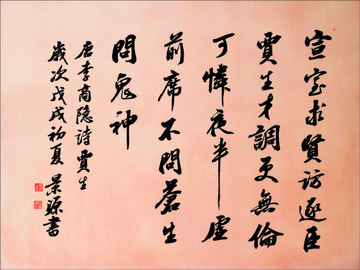 宣室求賢訪逐臣
賈生才調更無倫
可憐夜半虛
前席不問蒼生
問鬼神
唐李商隐詩賈生
歲次戊戌初夏景源書